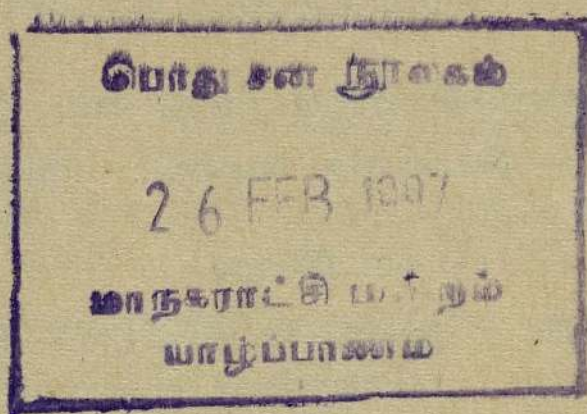 பொது சன நூலகம்
26 FEB
மாநகராட்சி மன்றம்
யாழ்ப்பாணம்